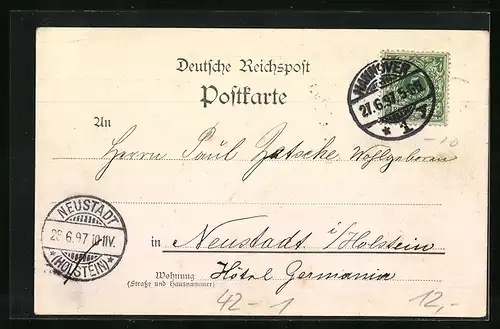 Deutsche Reichspost
Postkarte
HANNOVER
27.6.97. 5-6N.
* 1. A
An
-10
Herrn Paul Zatsche, Wohlgeboren
NEUSTADT
28.6.97.10-11V.
*(HOLSTEIN)*
in Neustadt i/Holstein
Wohnung Hôtel Germania
(Straße und Hausnummer)
42-1
12,-